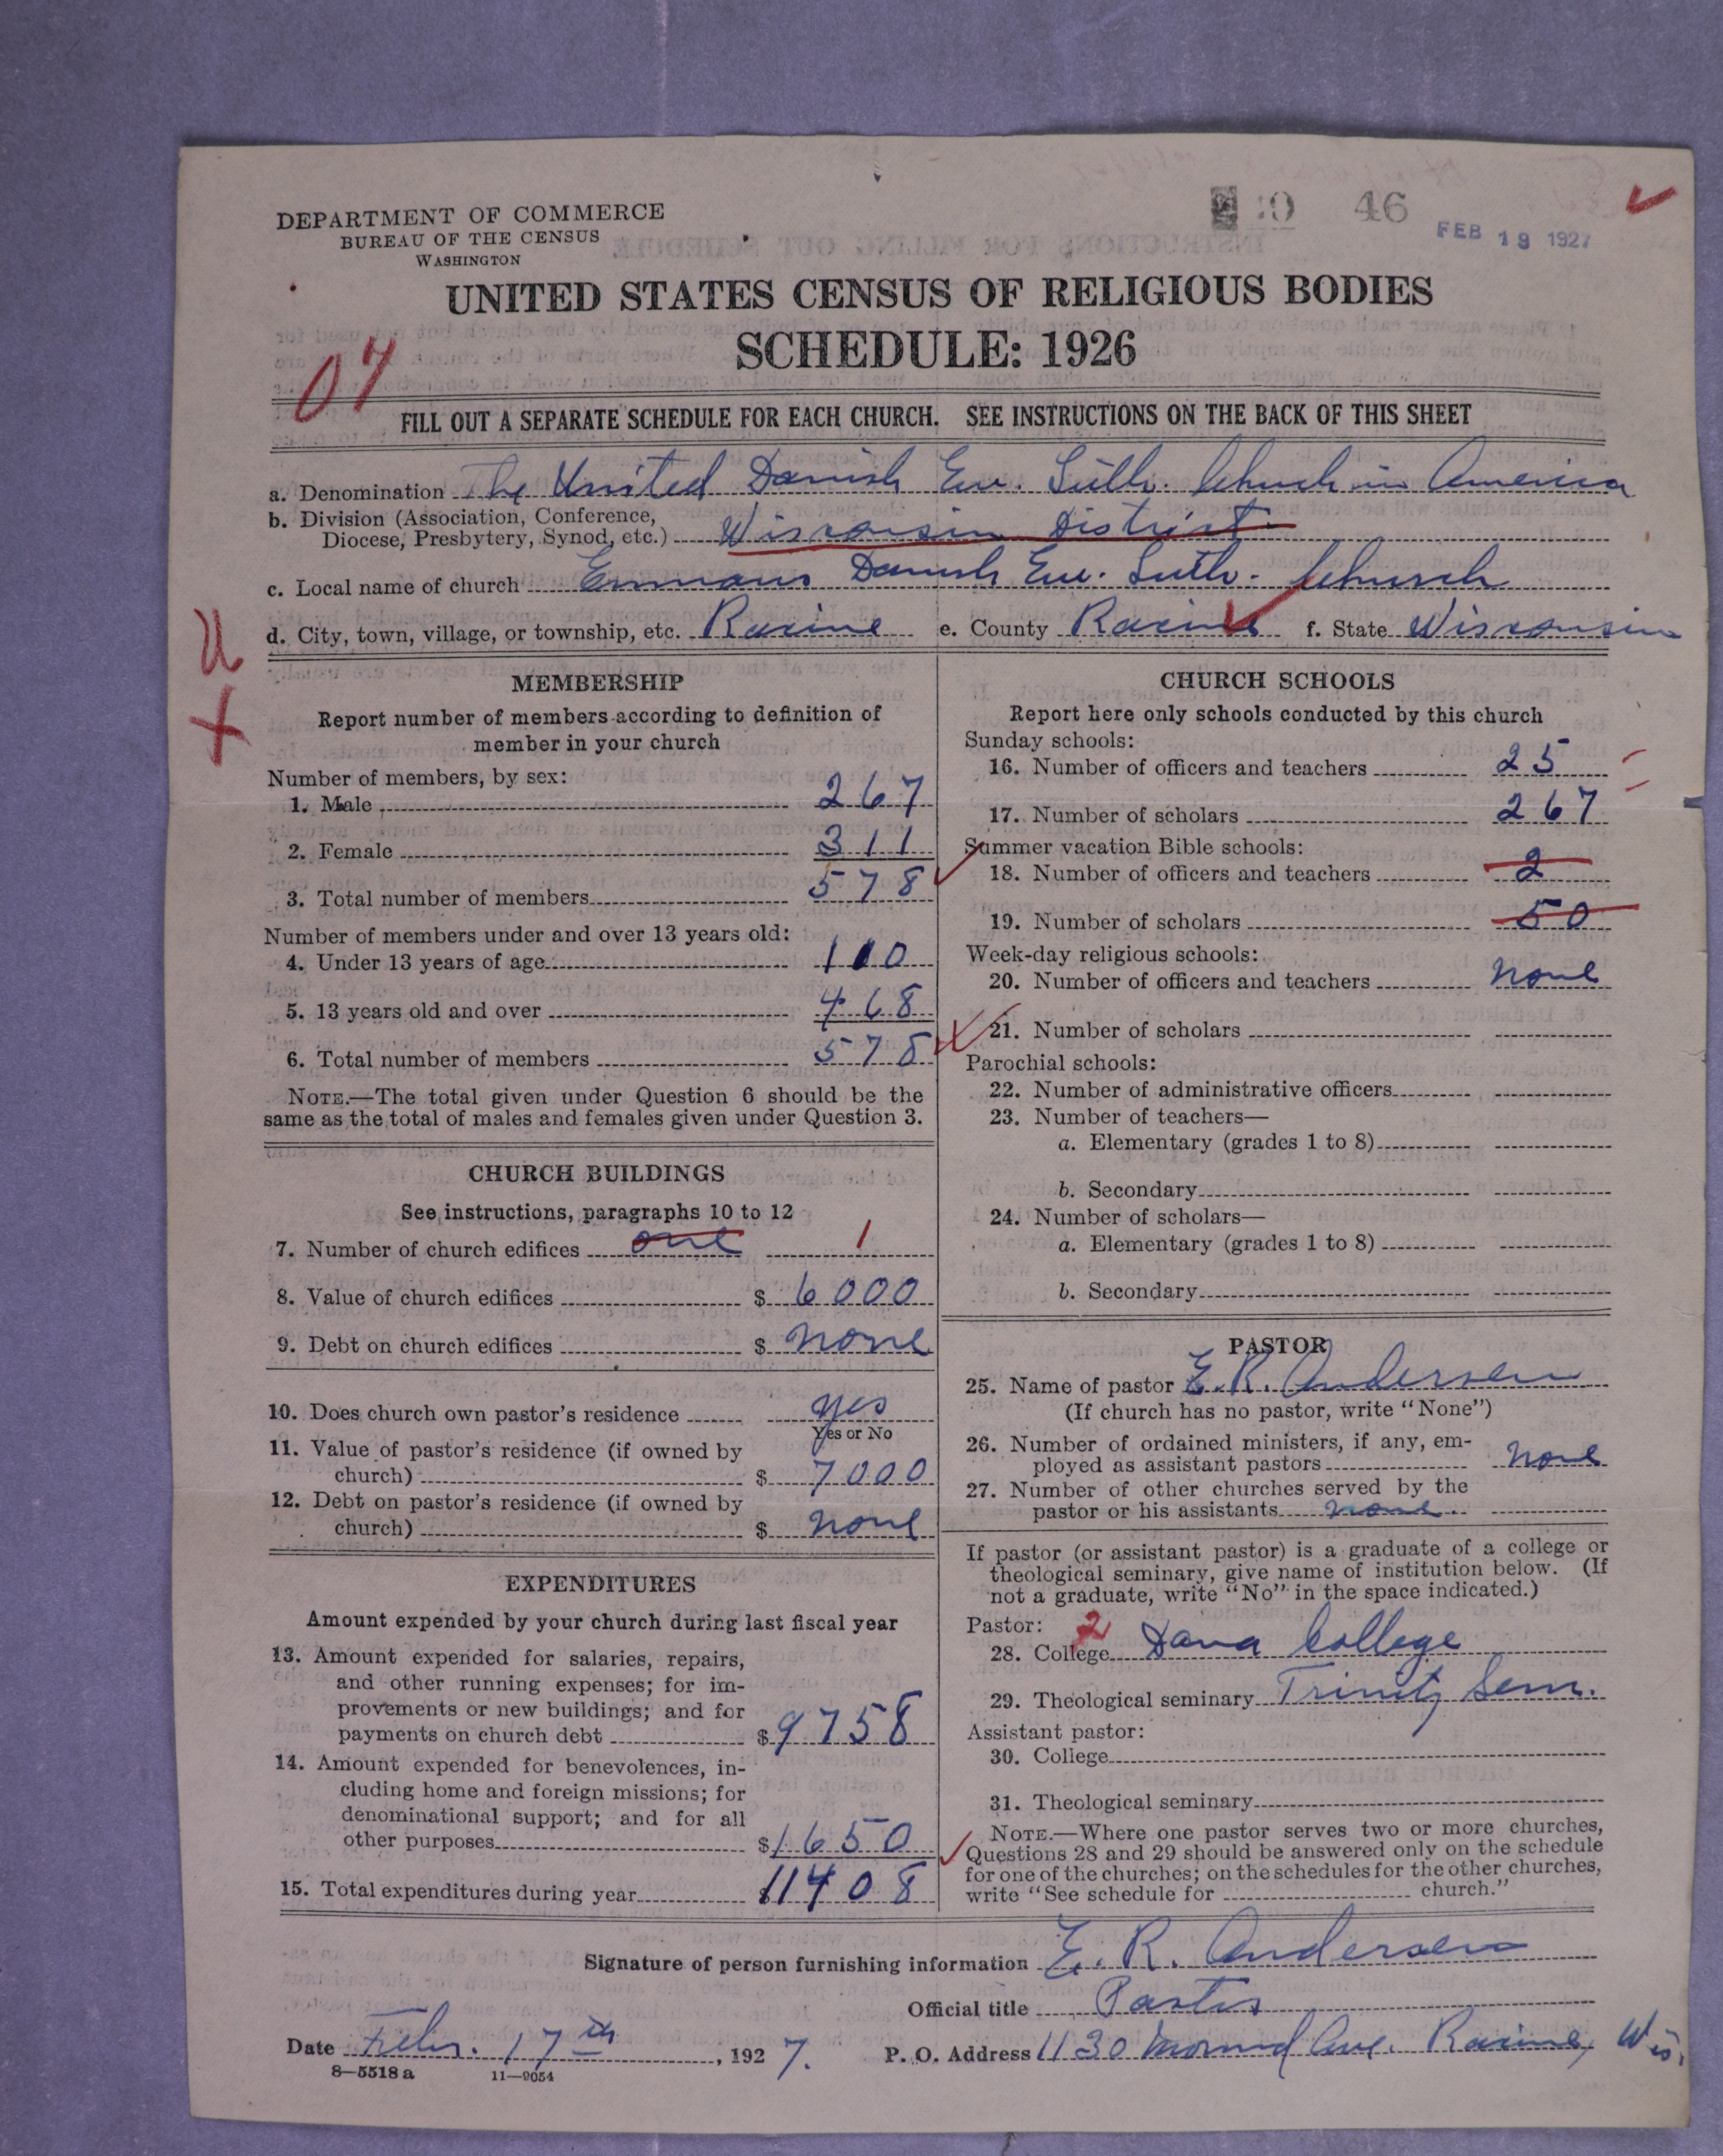 DEPARTMENT OF COMMERCE
BUREAU OF THE CENSUS
WASHINGTON
46
FEB 19 1927
UNITED STATES CENSUS OF RELIGIOUS BODIES
SCHEDULE: 1926
07
FILL OUT A SEPARATE SCHEDULE FOR EACH CHURCH. SEE INSTRUCTIONS ON THE BACK OF THIS SHEET
a. Denomination The United Danish Ev. Luth. Church in America
b. Division (Association, Conference, Diocese, Presbytery, Synod, etc.) Wisconsin District
c. Local name of church Emmaus Danish Ev. Luth. Church
d. City, town, village, or township, etc. Racine e. County Racine f. State Wisconsin
MEMBERSHIP
Report number of members according to definition of
member in your church
Number of members, by sex:
1. Male 267
2. Female 311
3. Total number of members 578
Number of members under and over 13 years old:
4. Under 13 years of age 110
5. 13 years old and over 468
6. Total number of members 578
NOTE.—The total given under Question 6 should be the
same as the total of males and females given under Question 3.
CHURCH BUILDINGS
See instructions, paragraphs 10 to 12
7. Number of church edifices one 1
8. Value of church edifices $ 6000
9. Debt on church edifices $ none
10. Does church own pastor's residence yes
Yes or No
11. Value of pastor's residence (if owned by
church) $ 7000
12. Debt on pastor's residence (if owned by
church) $ none
EXPENDITURES
Amount expended by your church during last fiscal year
13. Amount expended for salaries, repairs,
and other running expenses; for im-
provements or new buildings; and for
payments on church debt $ 9758
14. Amount expended for benevolences, in-
cluding home and foreign missions; for
denominational support; and for all
other purposes $ 1650
15. Total expenditures during year $ 11408
CHURCH SCHOOLS
Report here only schools conducted by this church
Sunday schools:
16. Number of officers and teachers 25
17. Number of scholars 267
Summer vacation Bible schools:
18. Number of officers and teachers 2
19. Number of scholars 50
Week-day religious schools:
20. Number of officers and teachers none
21. Number of scholars
Parochial schools:
22. Number of administrative officers
23. Number of teachers—
a. Elementary (grades 1 to 8)
b. Secondary
24. Number of scholars—
a. Elementary (grades 1 to 8)
b. Secondary
PASTOR
25. Name of pastor E. R. Andersen
(If church has no pastor, write "None")
26. Number of ordained ministers, if any, em-
ployed as assistant pastors none
27. Number of other churches served by the
pastor or his assistants none
If pastor (or assistant pastor) is a graduate of a college or
theological seminary, give name of institution below. (If
not a graduate, write "No" in the space indicated.)
Pastor: 2
28. College Dana College
29. Theological seminary Trinity Sem.
Assistant pastor:
30. College
31. Theological seminary
NOTE.—Where one pastor serves two or more churches,
Questions 28 and 29 should be answered only on the schedule
for one of the churches; on the schedules for the other churches,
write "See schedule for church."
Signature of person furnishing information E. R. Andersen
Official title Pastor
Date Febr. 17th, 1927. P. O. Address 1130 Mound Ave. Racine, Wis.
8—5518 a 11—9054